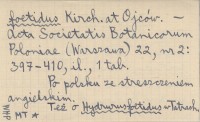 foetidus Kirch. at Ojców. –
Acta Societatis Botanicorum
Poloniae (Warszawa) 22, nr 2:
397-410, il., 1 tab.
Po polsku ze streszczeniem
angielskim.
Też o Hydrurus foetidus w Tatrach.
WHP
MT *